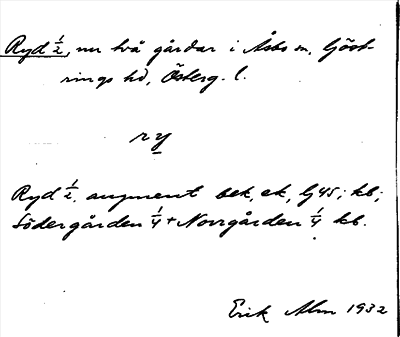 Ryd ½, nu två gårdar i Åsbo sn, Göst-
rings hd, Österg. l.
ry
Ryd ½, augment bek, ek, Gj 45; kb;
Södergården ¼ + Norrgården ¼ kb.
Erik Alm 1932